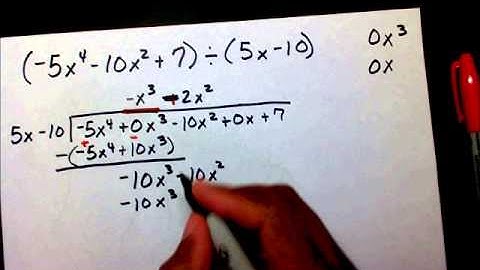 (-5x⁴ - 10x² + 7) ÷ (5x - 10)
0x³
0x
-x³ - 2x²
5x - 10 | -5x⁴ + 0x³ - 10x² + 0x + 7
-(-5x⁴ + 10x³)
-10x³ - 10x²
-10x³